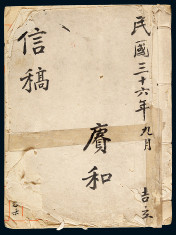 民國三十六年九月
吉立
賡和
信稿